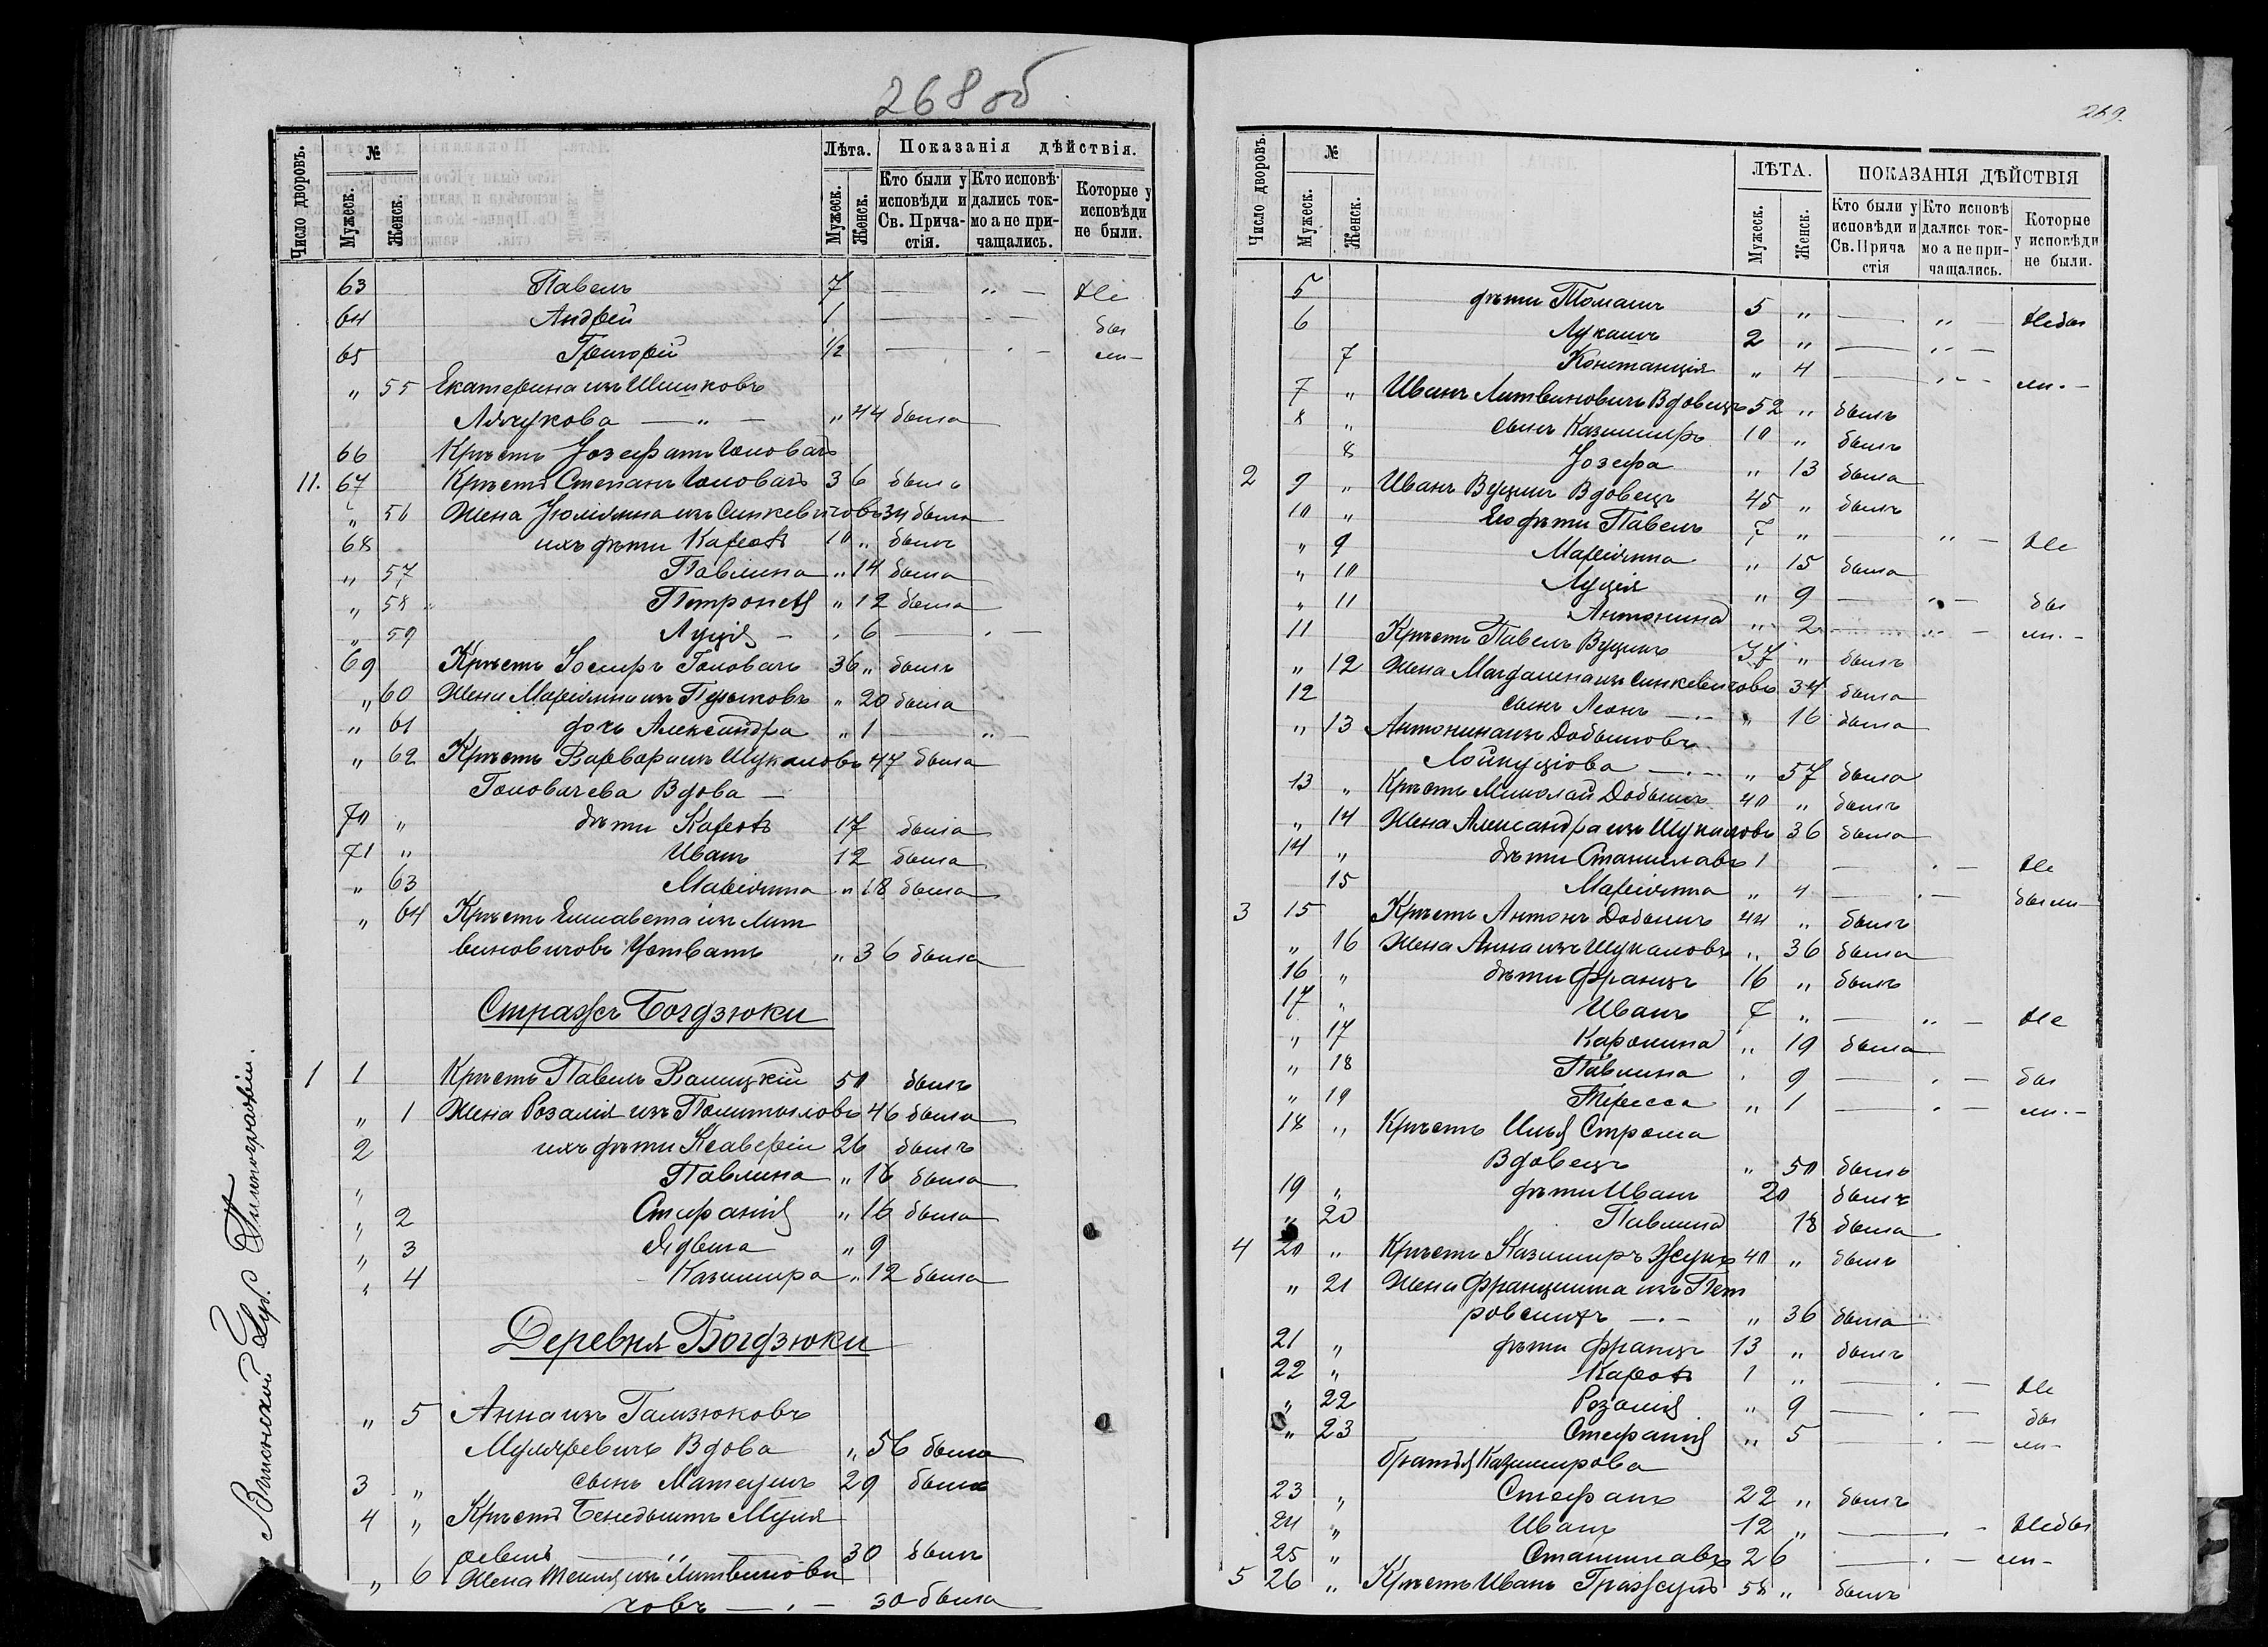 268 об
Число дворовъ. № Мужеск. Женск. Лѣта. Мужеск. Женск. Показанія дѣйствія. Кто были у исповѣди и Св. Причастія. Кто исповѣдались токмо а не причащались. Которые у исповѣди не были.
63 Павелъ 7 — " — Не
64 Андрей 1 — " — бы
65 Григорій 1/2 — " — ли —
" 55 Екатерина изъ Шишковъ
— " — " 44 была
66 Крѣст Іозефатъ
11. 67 Крѣст Степанъ 36
" 56 Жена Юліянна изъ Синкевичовъ 34 была
68 ихъ дѣти Кароль 10 " былъ
" 57 Павлина " 14 была
" 58 Петронеля " 12 была
" 59 Луція — " 6 — " —
69 Крѣст Іосифъ Головач 36 " былъ
" 60 Жена Маріянна изъ " 20 была
" 61 дочь Александра " 1 — " —
" 62 Крѣст Варвара изъ Шукаловъ 47 была
Головичева Вдова —
70 " дѣти Кароль 17 была
71 " Иванъ 12 была
" 63 Маріянна " 18 была
" 64 Крѣст Елисавета изъ Лит
виновичовъ " 36 была
Страж Богдзюки
1 1 Крѣст Павелъ Валицкій 50 былъ
" 1 Жена Розалія изъ 46 была
2 ихъ дѣти Ксаверій 26 былъ
" Павлина " 18 была
" 2 Стефанія " 16 была
" 3 Ядвига " 9
" 4 Казимира " 12 была
Деревня Богдзюки
" 5 Анна изъ Галзюковъ
Мулярчевичъ Вдова " 56 была
3 " сынъ Матеушъ 29
4 " Крѣст Бенедыктъ Муля
— " — 30 былъ
" 6 Жена изъ Литвинови
човъ — " — 30 была
Виленской Губ. Типографіи.
269.
Число дворовъ. № Мужеск. Женск. ЛѢТА. Мужеск. Женск. ПОКАЗАНІЯ ДѢЙСТВІЯ Кто были у исповѣди и Св. Причастія Кто исповѣдались токмо а не причащались. Которые у исповѣди не были.
5 дѣти Томашъ 5 " — " — Небы
6 Лукашъ 2 " — " —
7 Констанція " 4 — " — ли. —
7 " Иванъ Литвиновичъ Вдовецъ 52 " былъ
8 " сынъ Казимиръ 10 " былъ
8 Іозефа " 13 была
2 9 " Иванъ Вуцинъ Вдовецъ 45 " былъ
10 " Его дѣти Павелъ 7 " — " — Не
" 9 Маріянна " 15 была
" 10 Луція " 9 — " — бы
" 11 Антонина " 2 — " — ли. —
11 Крѣст Павелъ Вуцинъ 37 " былъ
" 12 Жена Магдалина изъ Синкевичовъ 34 была
12 сынъ Леонъ — " — " 16 была
" 13 Антонина изъ Добышовъ
— " — " 57 была
13 " Крѣст Миколай Добышъ 40 " былъ
" 14 Жена Александра изъ Шукаловъ 36 была
14 " дѣти Станиславъ 1 — " — Не
15 Маріянна " 4 — " — были —
3 15 Крѣст Антонъ Добышъ 44 " былъ
" 16 Жена Анна изъ Шукаловъ " 36 была
16 " дѣти Францъ 16 " былъ
17 " Иванъ 7 " — " — Не
" 17 Каролина " 19 была
" 18 Павлина " 9 — " — бы
" 19 Тересса " 1 — " — ли. —
18 " Крѣст Илья Строша
Вдовецъ " 50 былъ
19 " дѣти Иванъ 20 былъ
" 20 Павлина 18 была
4 20 " Крѣст Казимиръ Жукъ 40 " былъ
" 21 Жена Францишка изъ Пет
ровскихъ — " — " 36 была
21 " дѣти Францъ 13 " былъ
22 " Кароль 1 " — " — Не
" 22 Розалія " 9 — " — бы
" 23 Стефанія " 5 — " — ли —
братья Казимирова
23 " Стефанъ 22 " былъ
24 " Иванъ 12 " — " — Небы
25 " Станиславъ 26 — " — ли —
5 26 " Крѣст Иванъ 58 " былъ